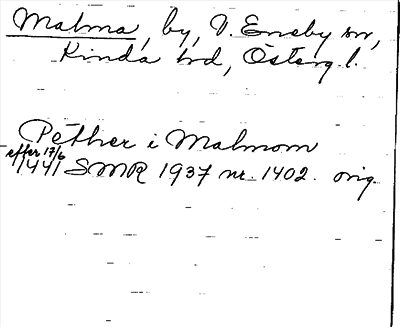 Malma, by, V. Eneby sn,
Kinda hd, Österg l.
Pether i Malmom
efter 17/6
1441 SMR 1937 nr. 1402. orig.